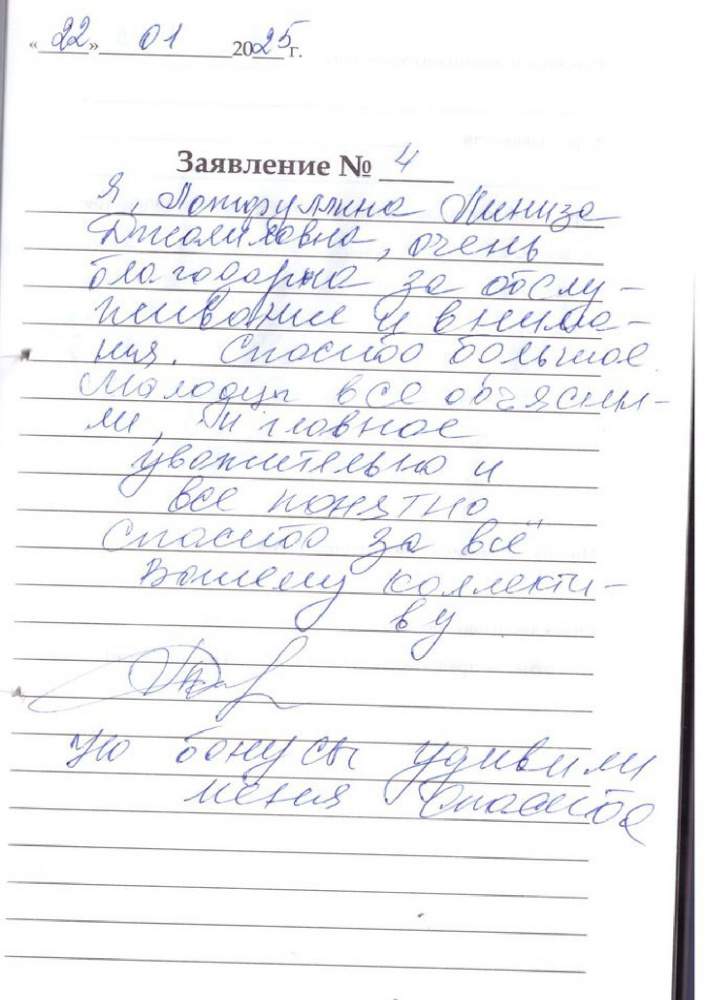 «22» 01 2025 г.
Заявление № 4
Я, Лотфуллина
Джалиловна, очень
благодарна за обслу-
живание и внима-
ния. Спасибо большое.
Молодцы все объясни-
ли, и главное
уважительно и
все понятно
Спасибо за всё
Вашему коллекти-
ву
Ну бонусы удивили
меня Спасибо